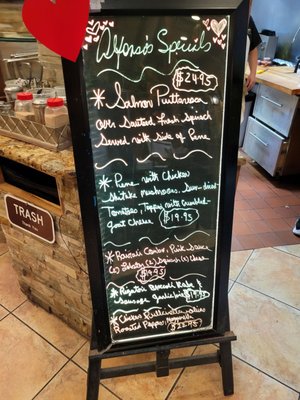 Alfonso's Specials
$24.95
* Salmon Puttanesca
Over Sauteed Fresh Spinach
Served with side of Penne
* Penne with Chicken
Shitake mushrooms, Sun-dried
Tomatoes, Topped with Crumbled
goat cheese $19.95
* Ravioli Combo, Pink Sauce
(2) Lobster (2) Squash (2) Cheese
$19.95
* Rigatoni Broccoli Rabe &
Sausage garlic $19.95
* Chicken
Roasted Peppers, Mozzarella
$22.95
TRASH
Thank You